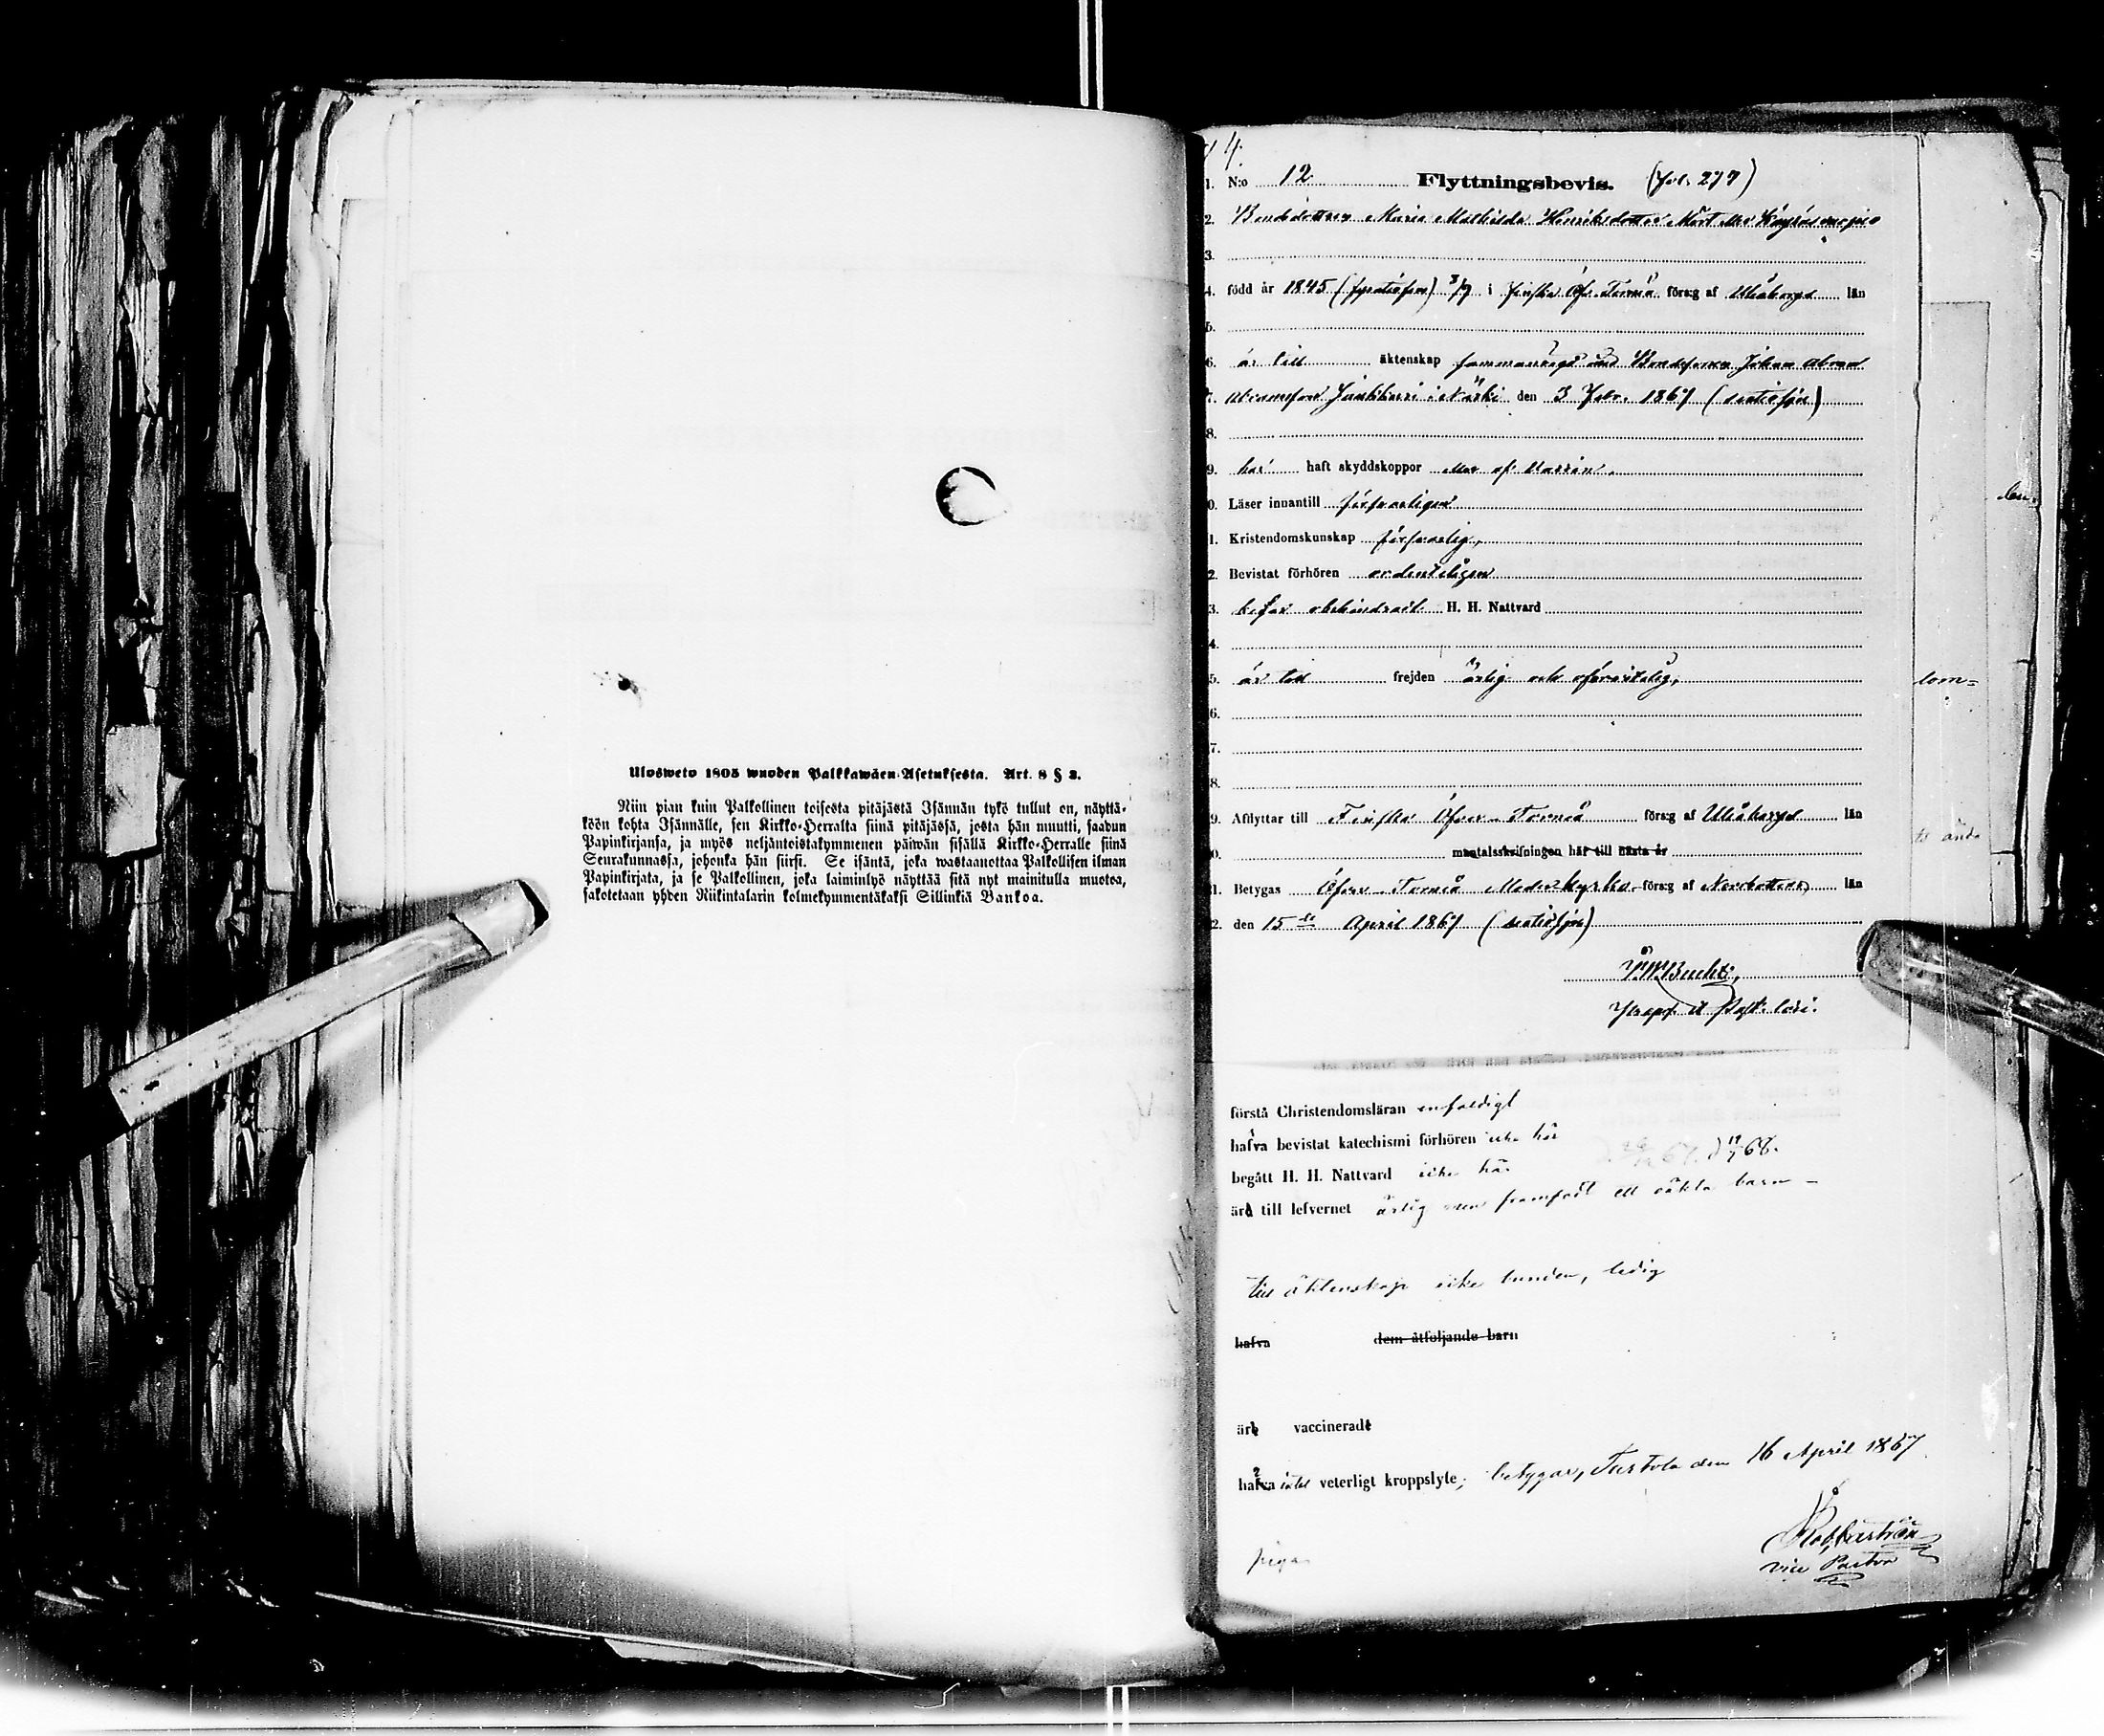 Ulosweto 1805 wuoden Palkkawäen-Asetuksesta. Art. 8 § 2.
Niin pian kuin Palkollinen toisesta pitäjästä Isännän tykö tullut on, näyttä-
köön kohta Isännälle, sen Kirkko-Herralta siinä pitäjässä, josta hän muutti, saadun
Papinkirjansa, ja myös neljäntoistakymmenen päiwän sisällä Kirkko-Herralle siinä
Seurakunnassa, johonka hän siirsi. Se isäntä, joka wastaanottaa Palkollisen ilman
Papinkirjata, ja se Palkollinen, joka laiminlyö näyttää sitä nyt mainitulla muotoa,
sakotetaan yhden Riikintalarin kolmekymmentäkaksi Sillinkiä Bankoa.
4.
1. N:o 12 Flyttningsbevis. (fol. 277)
2. Bondedottren Maria Mathilda Henriksdotter
3.
4. född år 1845 (fyratiofem) 3/9 i Finska Öf. Torneå förs:g af Uleåborgs län
5.
6. är till äktenskap sammanvigd med Bondesonen Johan Abram
7. Abramsson i Närki den 3 Febr. 1867 (sextiosju)
8.
9. har haft skyddskoppor
0. Läser innantill försvarligen
1. Kristendomskunskap försvarlig,
2. Bevistat förhören ordenteligen
3. begar obehindradt H. H. Nattvard
4.
5. är till frejden ärlig och oförvitelig,
6.
7.
8.
9. Afflyttar till Finska Öfver-Torneå förs:g af Uleåborgs län
0. mantalsskrifningen här till nästa år
1. Betygas Öfver-Torneå Moderkyrka förs:g af Norrbottens län
2. den 15de April 1867 (sextiosju)
förstå Christendomsläran enfaldigt
hafva bevistat katechismi förhören icke här
begått H. H. Nattvard icke här
ärd till lefvernet ärlig men framfödt ett oäkta barn –
till äktenskap icke bunden, ledig
hafva dem åtföljande barn
äre vaccinerade
hafva intet veterligt kroppslyte; betygar, Turtola den 16 April 1867
vice Pastor
piga